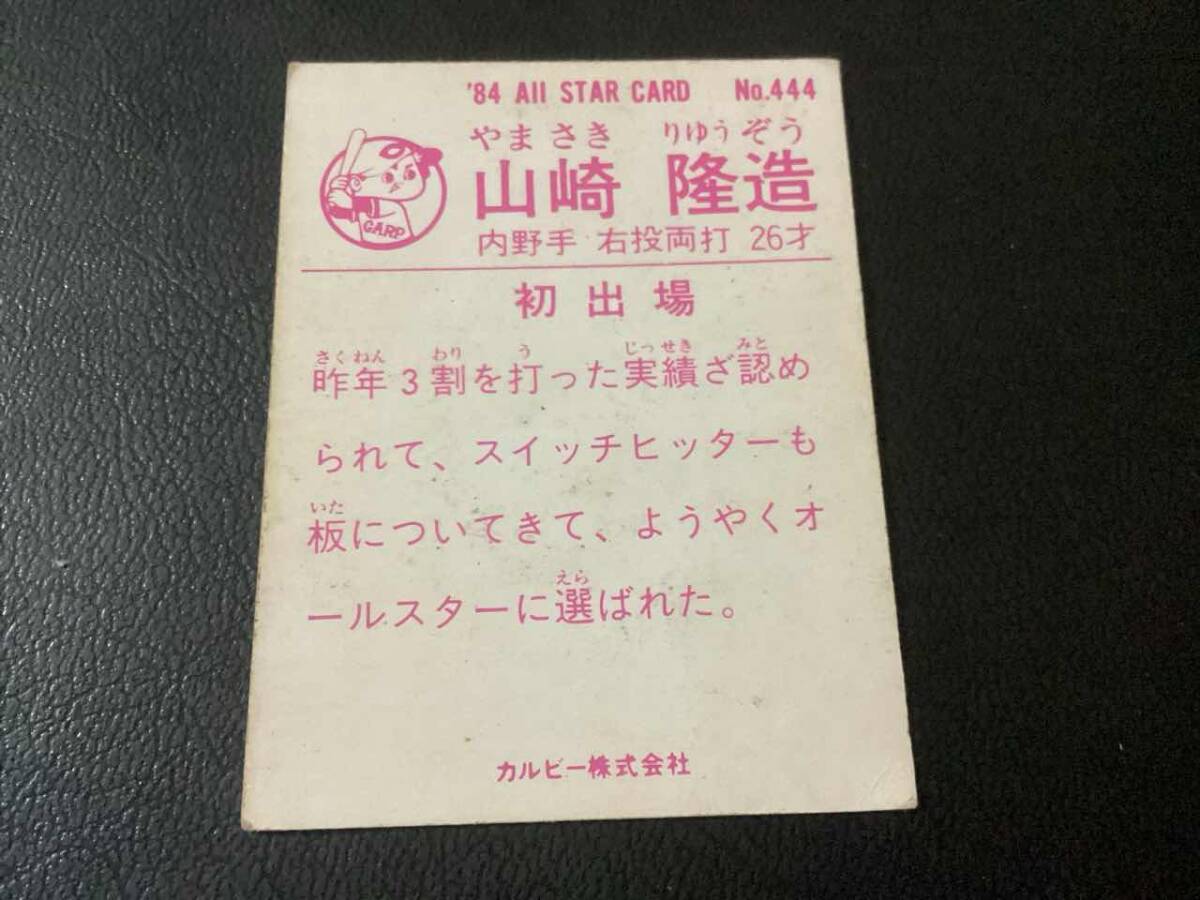 '84 All STAR CARD No.444
やまさき りゆうぞう
山崎 隆造
CARP
内野手 右投両打 26才
初出場
さくねん わり う じっせき みと
昨年3割を打った実績ざ認め
られて、スイッチヒッターも
いた
板についてきて、ようやくオ
えら
ールスターに選ばれた。
カルビー株式会社